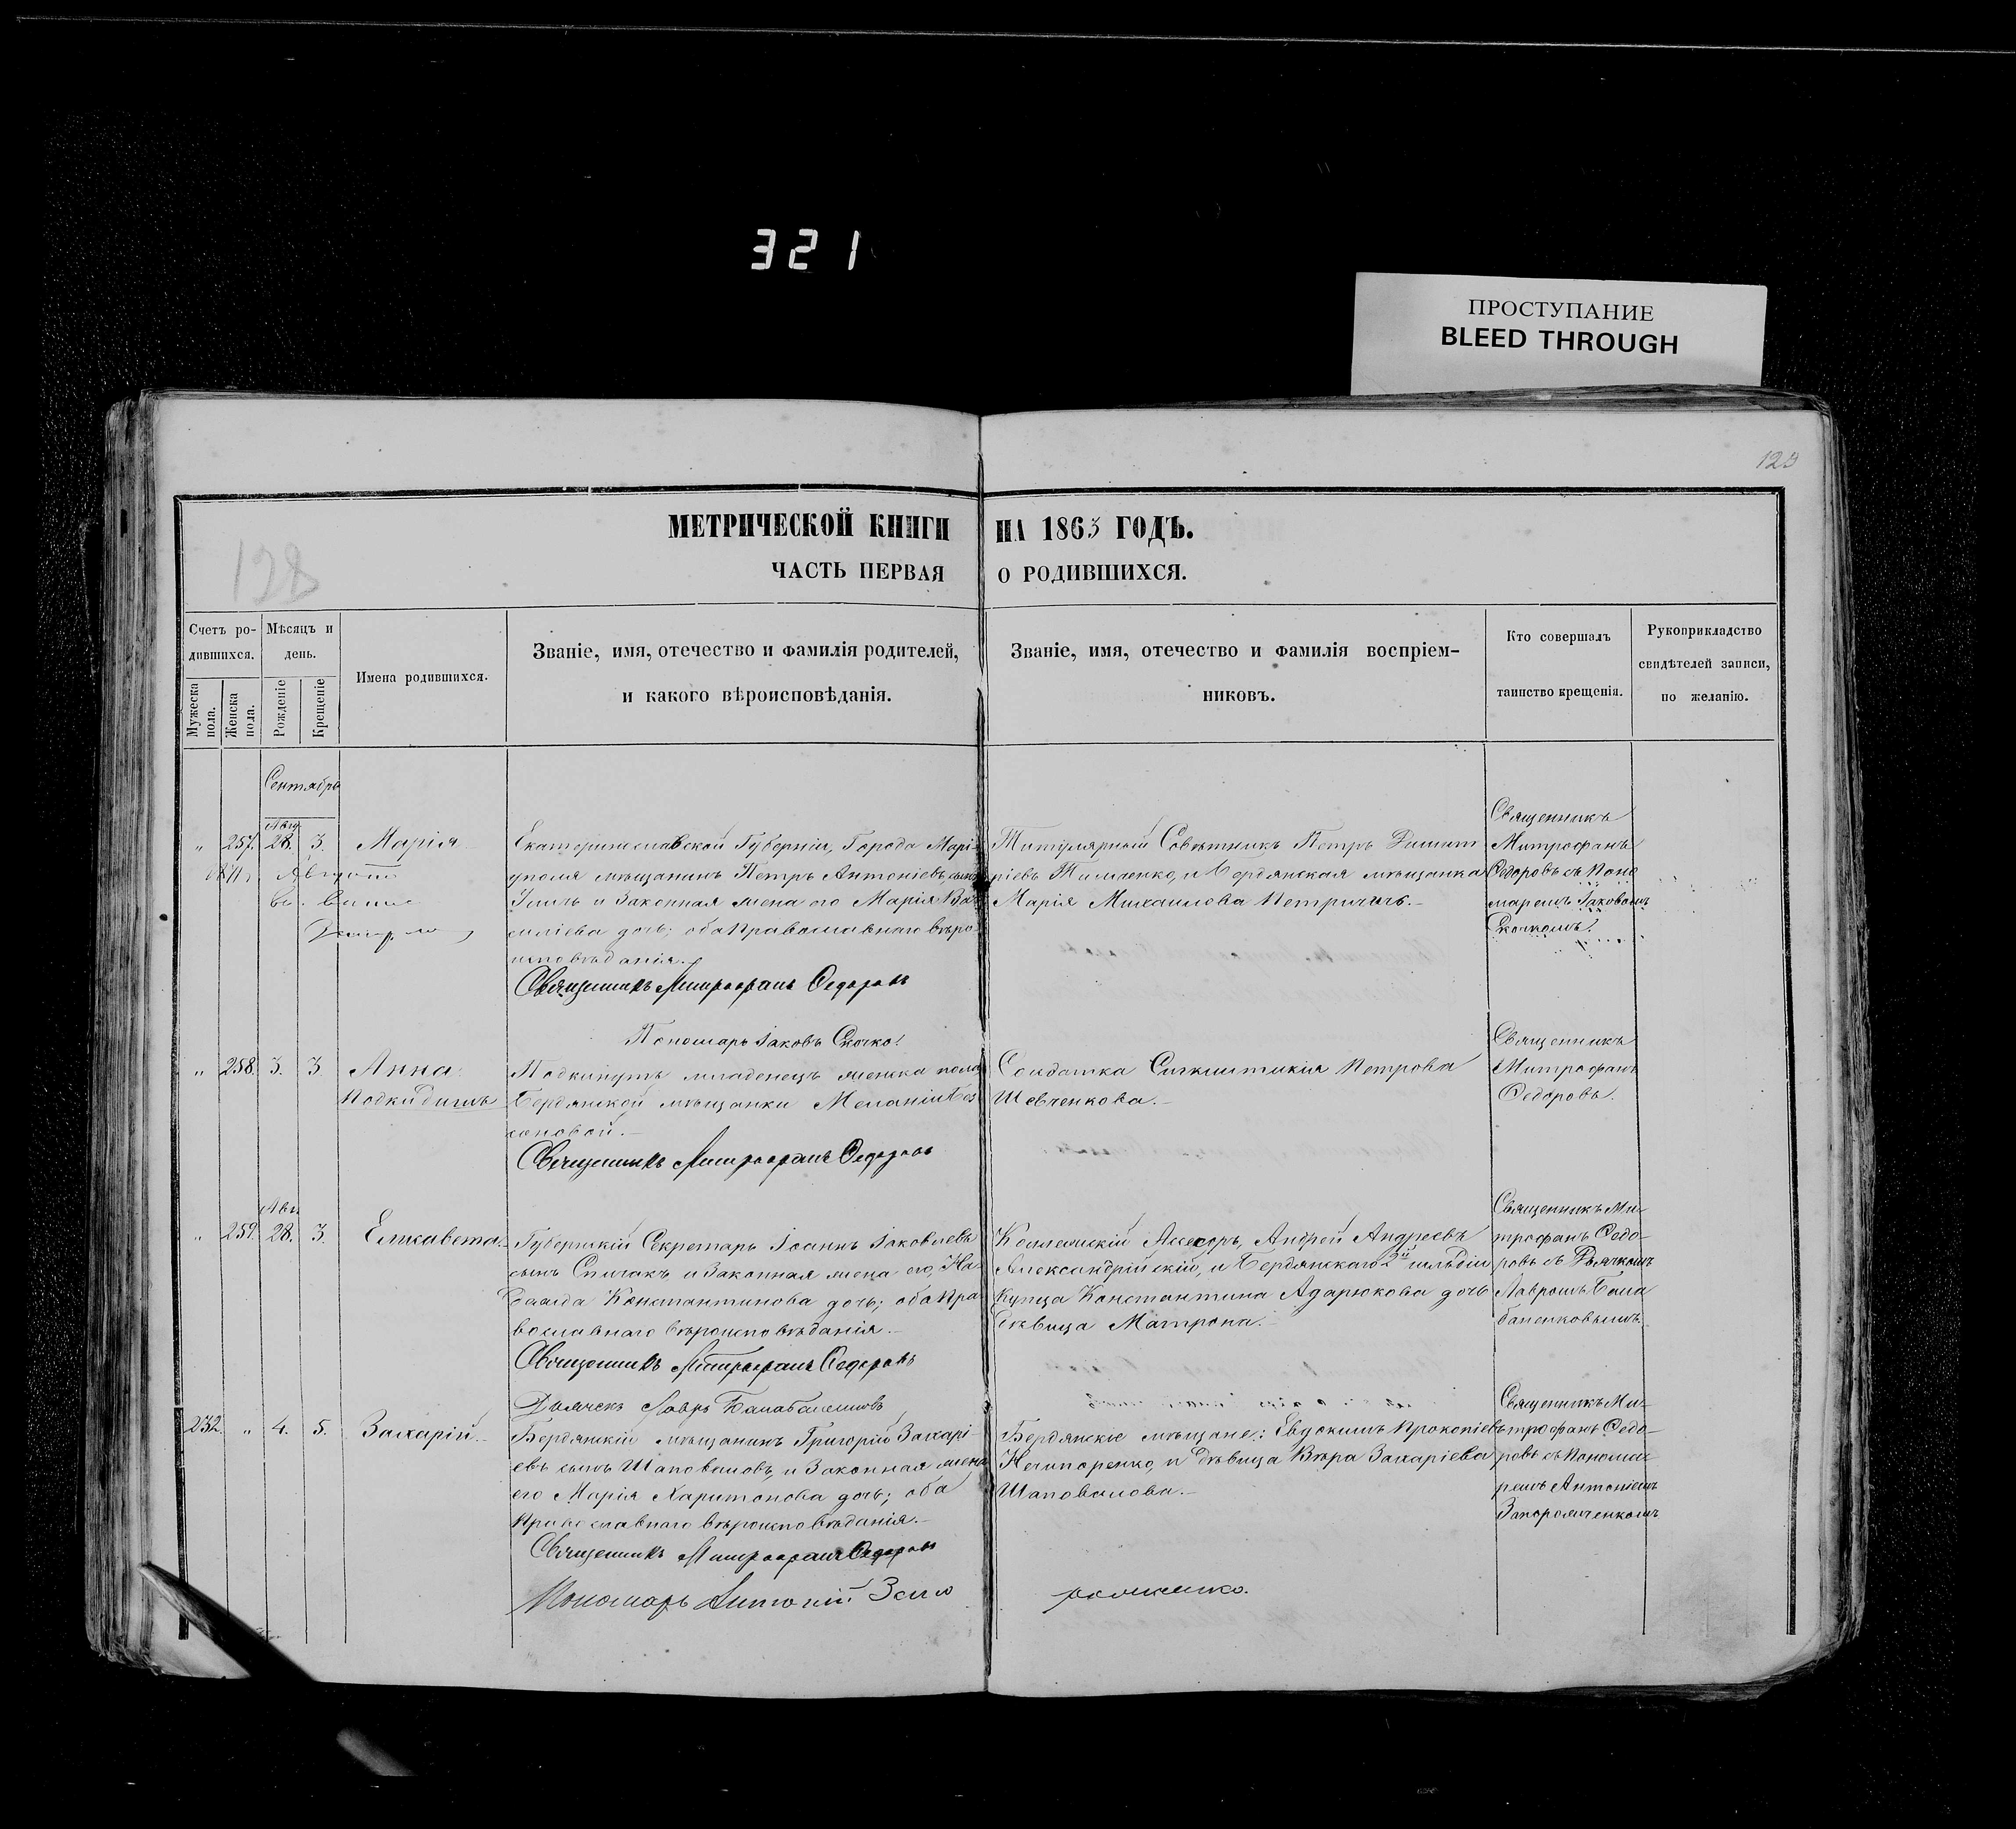 321
ПРОСТУПАНИЕ
BLEED THROUGH
123
128
МЕТРИЧЕСКОЙ КНИГИ НА 1863 ГОДЪ.
ЧАСТЬ ПЕРВАЯ О РОДИВШИХСЯ.
Счетъ ро-
дившихся.
Мужеска пола.
Женска пола.
Мѣсяцъ и
день.
Рожденіе
Крещеніе
Имена родившихся.
Званіе, имя, отечество и фамилія родителей,
и какого вѣроисповѣданія.
Званіе, имя, отечество и фамилія воспріем-
никовъ.
Кто совершалъ
таинство крещенія.
Рукоприкладство
свидѣтелей записи,
по желанію.
Сентябрь
Авг.
" 257. 28. 3. Марія
Екатеринославской Губерніи, Города Марі-
уполя мѣщанинъ Петръ Антоніевъ сынъ
и Законная жена его Марія Ва-
силіева дочь; оба Православнаго вѣро-
исповѣданія.
Священникъ Митрофанъ Федоровъ
Пономарь Іаковъ Скочко.
Титулярный Совѣтникъ Петръ Димит
ріевъ Тимченко, и Бердянская мѣщанка
Марія Михаилова Петричичъ.
Священникъ
Митрофанъ
Федоровъ съ Поно
маремъ Іаковомъ
Скочкомъ.
" 258. 3. 3. Анна
Подкидышъ
Подкинутъ младенецъ женска пола
Бердянской мѣщанки Меланіи Без
соновой.
Священникъ Митрофанъ Федоровъ
Солдатка Синклитикія Петрова
Шевченкова.
Священникъ
Митрофанъ
Федоровъ.
Авг.
" 259. 28. 3. Елисавета.
Губернскій Секретарь Іоаннъ Іаковлевъ
сынъ Спичакъ и Законная жена его, На-
дежда Константинова дочь; оба Пра
вославнаго вѣроисповѣданія.
Священникъ Митрофанъ Федоровъ
Дьячекъ Лавръ Балабаненковъ
Коллежскій Асессоръ, Андрей Андреевъ
Александрійскій, и Бердянскаго 2й гильдіи
купца Константина Адарюкова дочь
дѣвица Матрона.
Священникъ Ми-
трофанъ Федо-
ровъ съ Дьячкомъ
Лавромъ Бала
баненковымъ.
232. " 4. 5. Захарій.
Бердянскій мѣщанинъ Григорій Захарі-
евъ сынъ Шаповаловъ, и Законная жена
его Марія Харитонова дочь; оба
Православнаго вѣроисповѣданія.
Священникъ Митрофанъ Федоровъ
Пономарь Антоній Запо рожченко.
Бердянскіе мѣщане: Евдокимъ Прокопіевъ
Нечипоренко, и дѣвица Вѣра Захаріева
Шаповалова.
Священникъ Ми-
трофанъ Федо-
ровъ съ Понома-
ремъ Антоніемъ
Запорожченкомъ